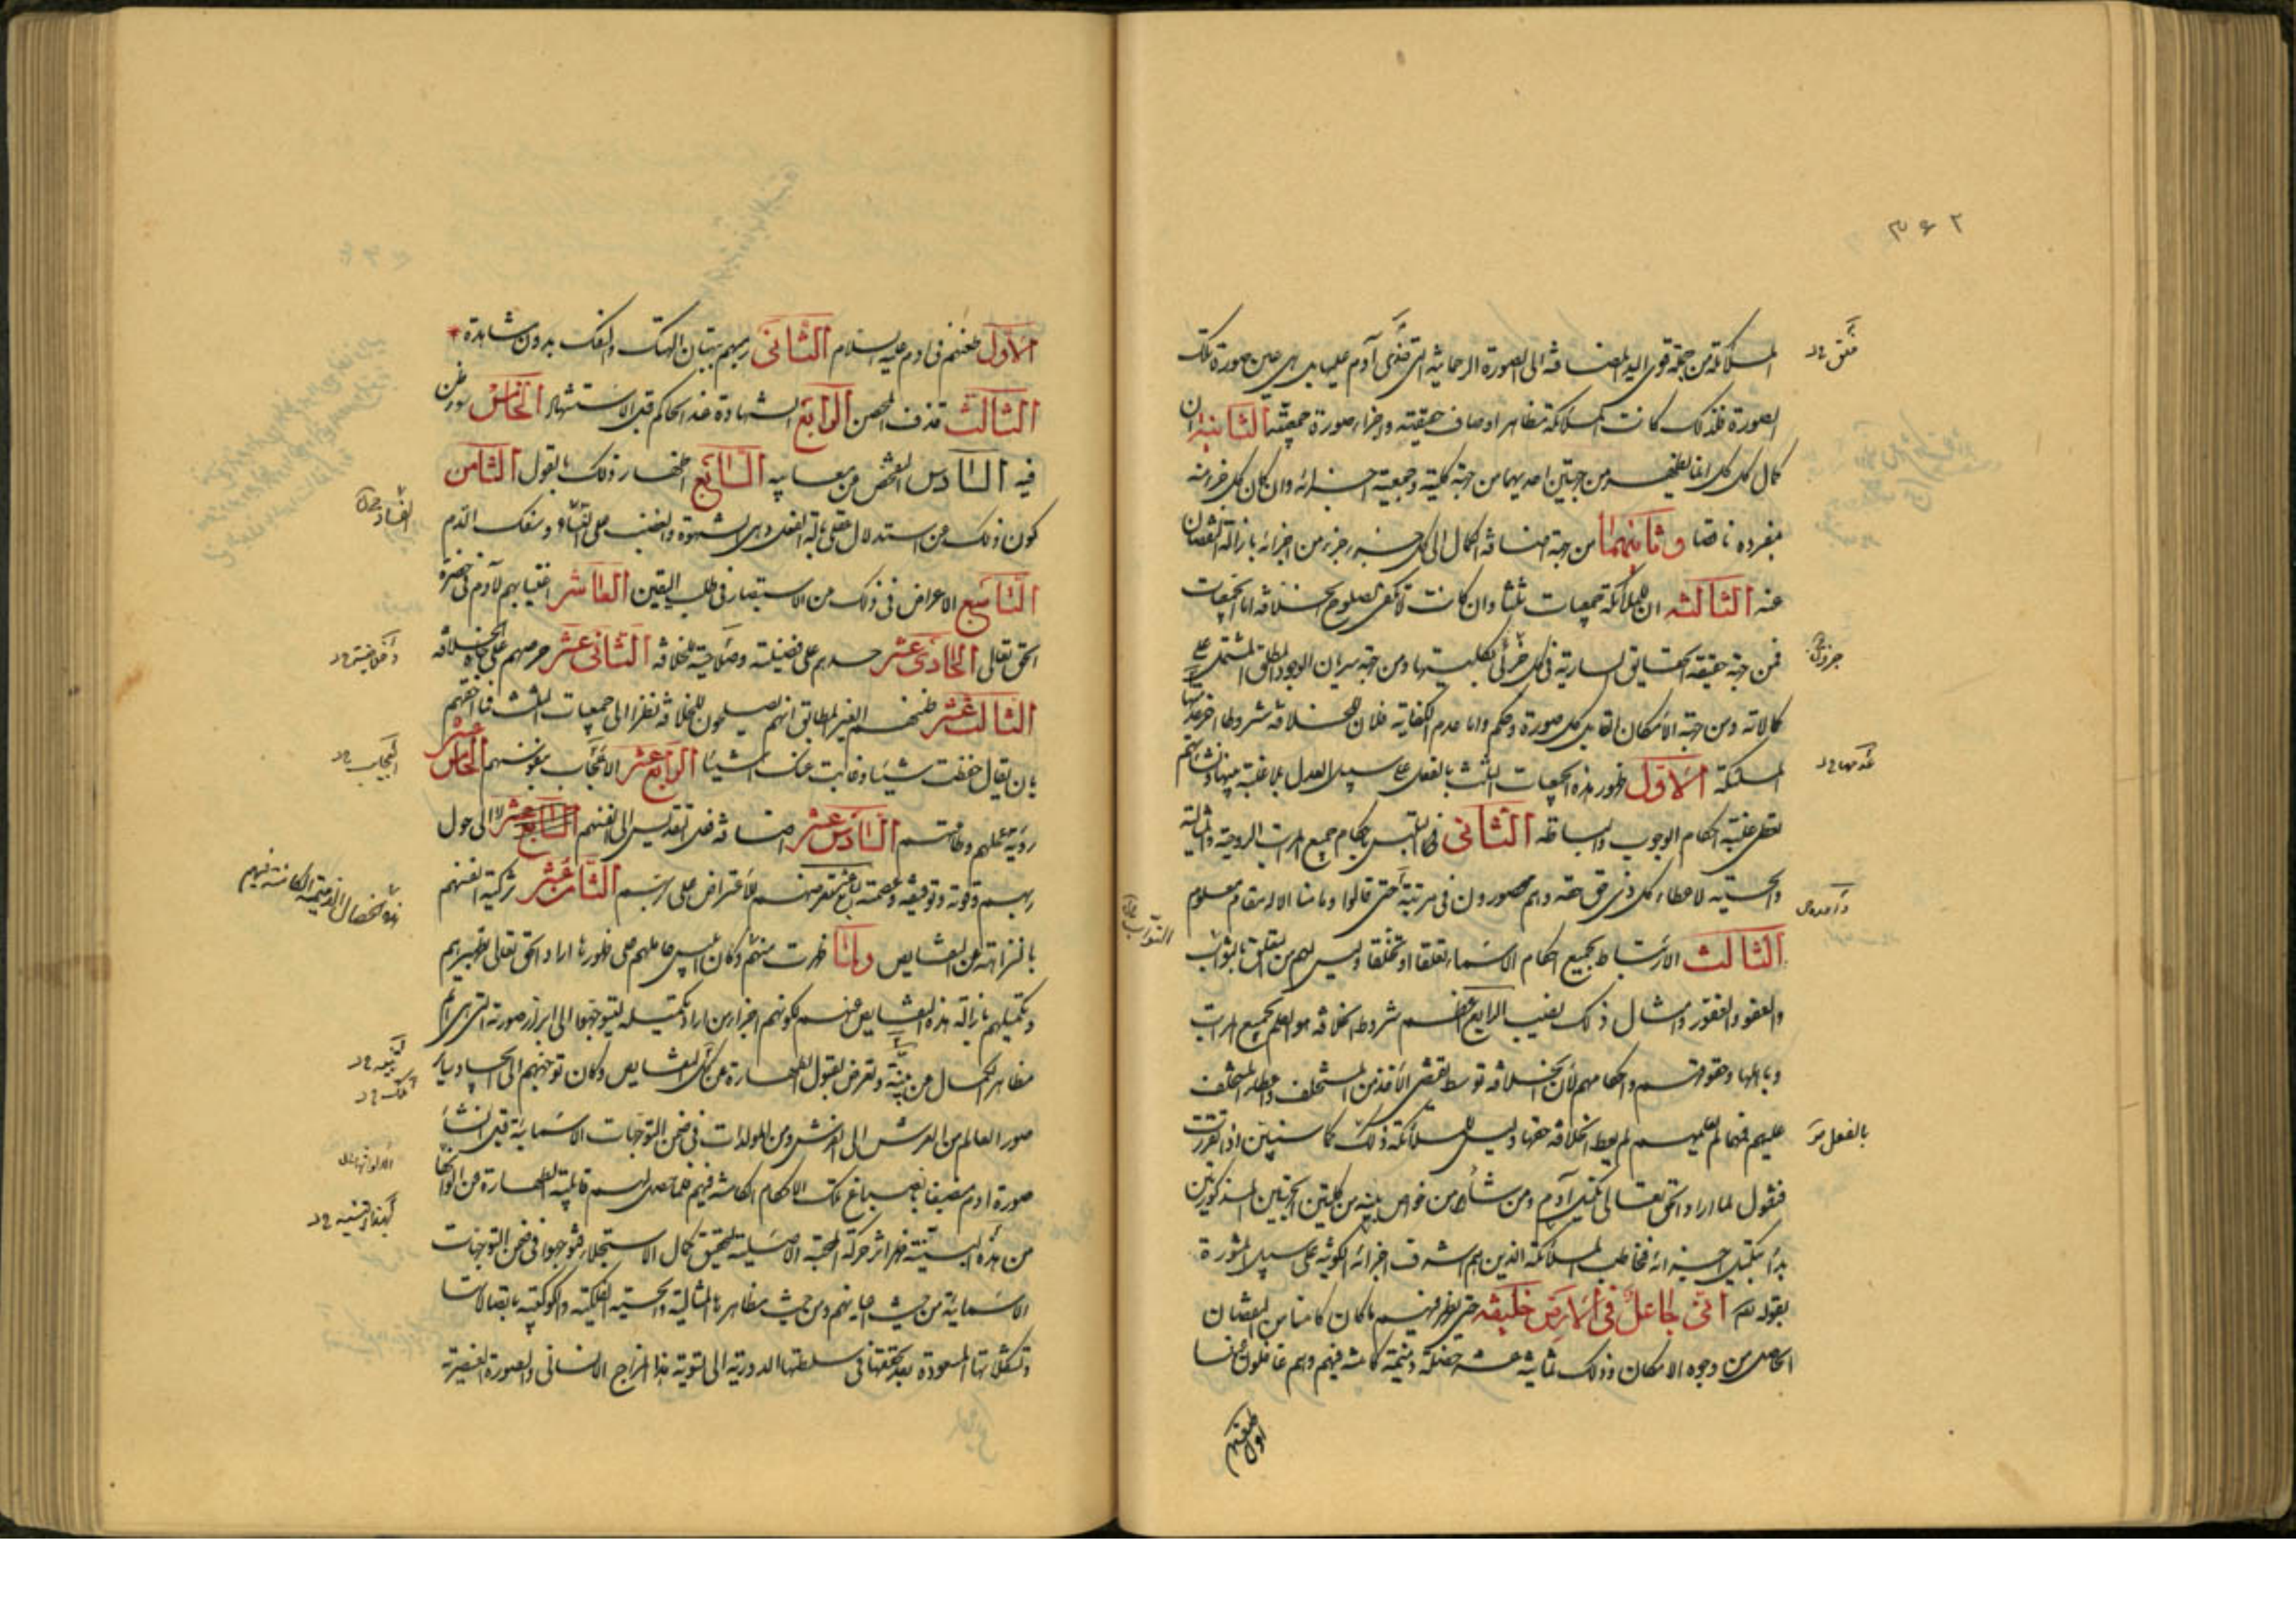 ٣٦٢
الملائكة من جهة قوى اليد المضافة الى الصورة الرحمانية التى حذى آدم عليها بل هى عين صورة تلك
الصورة فلذلك كانت الملائكة مظاهر اوصاف حقيقته واجزاء صورة جمعيته الثانية ان
كمال كل كل انما يظهر من جهتين احديهما من جهة كليته وجمعية اجزائه وان كان كل جزء منه
بمفرده ناقصا وثانيتهما من جهة اضافة الكمال الى كل جزء جزء من اجزائه بازالة النقصان
عنه الثالثة ان للملائكة جمعيات ثلثا وان كانت لا تكفى لصلوح الخلافة اما الجمعيات
فمن جهة حقيقة الحقايق السارية فى كل جزئى بكليتها ومن جهة سريان الوجود المطلق المشتمل على
كمالاته ومن جهة الامكان القابل كل صورة وحكم واما عدم الكفاية فلان للخلافة شروطا اخر عدمتها
الملئكة الاول ظهور هذه الجمعيات الثلث بالفعل على سبيل العدل بلا غلبة
غلبة احكام الوجوب والبساطة الثانى التلبس باحكام جميع المراتب الروحية والمثالية
والحسية لاعطاء كل ذى حق حقه وهم محصورون فى مرتبة حتى قالوا وما منا الا له مقام معلوم
الثالث الارتباط بجميع احكام الاسماء تعلقا او تخلقا وليس لهم من التعلق بالتواب
والعفو والغفور وامثال ذلك نصيب الرابع اعظم شروط الخلافة هو العلم بجميع المراتب
وباهلها وحقوقهم واحكامهم لان الخلافة توسط يقتضى الاخذ من المستخلف واعطاء المستخلف
عليهم فمهما لم يعلمهم لم يعط الخلافة حقها وليس للملائكة ذلك كما سنبين اذا تقررت
فنقول لما اراد الحق تعالى تكميل آدم ومن شأنه من خواص بنيه من كلتى الجهتين المذكورتين
بدأ بتكميل اجزائه فخاطب الملائكة الذين هم اشرف اجزائه الكونية على سبيل المشورة
بقوله انى جاعل فى الارض خليفة حتى يظهر فيهم ما كان كامنا من النقصان
الحاصل من وجوه الامكان وذلك ثمانية عشر خصلة ذميمة كامنة فيهم وهم غافلون عنها
الاول طعنهم فى ادم عليه السلام الثانى رميهم ببهتان الهتك والسفك بدون مشاهدة
الثالث قذف المحصن الرابع الشهادة عند الحاكم قبل الاستشهاد الخامس سوء ظن
فيه السادس الفحص من معايبه السابع اظهار ذلك بالقول الثامن
كون ذلك من استدلال عقلى بآلة الفعل وهى الشهوة والغضب على الفساد وسفك الدم
التاسع الاعراض فى ذلك من الاستبصار فى طلب اليقين العاشر اغتيابهم لآدم فى حضرة
الحق تعالى الحادى عشر حسدهم على فضيلته وصلاحية للخلافة الثانى عشر حرصهم على جاه الخلافة
الثالث عشر ظنهم الغير المطابق انهم يصلحون للخلافة نظرا الى الجمعيات الثلث فناقضهم
بان يقال حفظت شيئا وغابت عنك اشيئا الرابع عشر الاعجاب بنفوسهم الخامس عشر
رؤية عملهم وطاعتهم السادس عشر اضافة فعل التقديس الى انفسهم السابع عشر لا الى حول
ربهم وقوته وتوفيقه وعصمته الاعتراض على ربهم الثامن عشر تزكية انفسهم
بالنزاهة عن النقايص ولما ظهرت منهم وكان ابليس حاملهم على ظهورها اراد الحق تعالى تطهيرهم
وتكميلهم بازالة هذه النقايص عنهم لكونهم اجزاء من اراد تكميله ليتوجهوا الى ابراز صورته التى هى اتم
مظاهر الكمال من بينة وتعرض لقبول الطهارة من تلك النقايص وكان توجههم الى ايجاد باير
صور العالم من العرش الى الفرش ومن المولدات فى ضمن التوجهات الاسمائية قبل انشاء
صورة ادم منصبغا بانصباغ تلك الاحكام الكامنة فيهم فلما حصل لهم قابلية الطهارة من الواثها
من هذه البينة ظهر اثر حركة المحبة الاصلية لتحقيق كمال الاستجلاء فتوجهوا فى ضمن التوجهات
الاسمائية من حيث اعيانهم ومن حيث مظاهرها المثالية والحسية الفلكية والكوكبية باتصالات
وتشكلاتها المسعودة بعد تحققها فى سلطنتها الدورية الى تسوية هذا المزاج الانسانى والصورة العنصرية
بالفعل
هذه الخصال الذميمة الكامنة فيهم